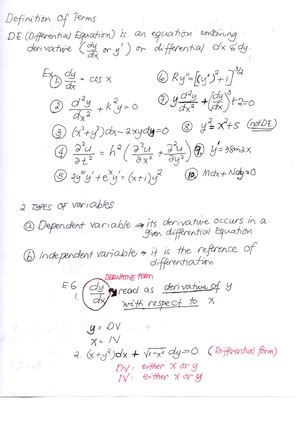 Definition of Terms
DE (Differential Equation) is an equation containing
derivative (dy/dx or y') or differential dx & dy.
Ex. ① dy/dx = cos x ⑥ Ry'' = [(y')² + 1]^3/2
② d²y/dx² + k²y = 0 ⑦ y d²y/dx² + (dy/dx)³ + 2 = 0
③ (x² + y²)dx - 2xydy = 0 ⑧ y² = x² + 5 (not DE)
④ ∂²u/∂t² = h² (∂²u/∂x² + ∂²u/∂y²) ⑨ y' = 38m2x
⑤ 2y'''y' + eˣy' = (x+1)y² ⑩ Mdx + Ndy = 0
2 TYPES OF VARIABLES
ⓐ Dependent variable → its derivative occurs in a
given differential Equation
ⓑ Independent variable → it is the reference of
differentiation
DERIVATIVE FORM
E.G
1. dy/dx → read as derivative of y
with respect to x
y = DV
x = IV
2. (x+y²)dx + √1-x² dy = 0 (Differential form)
DV = either x or y
IV = either x or y